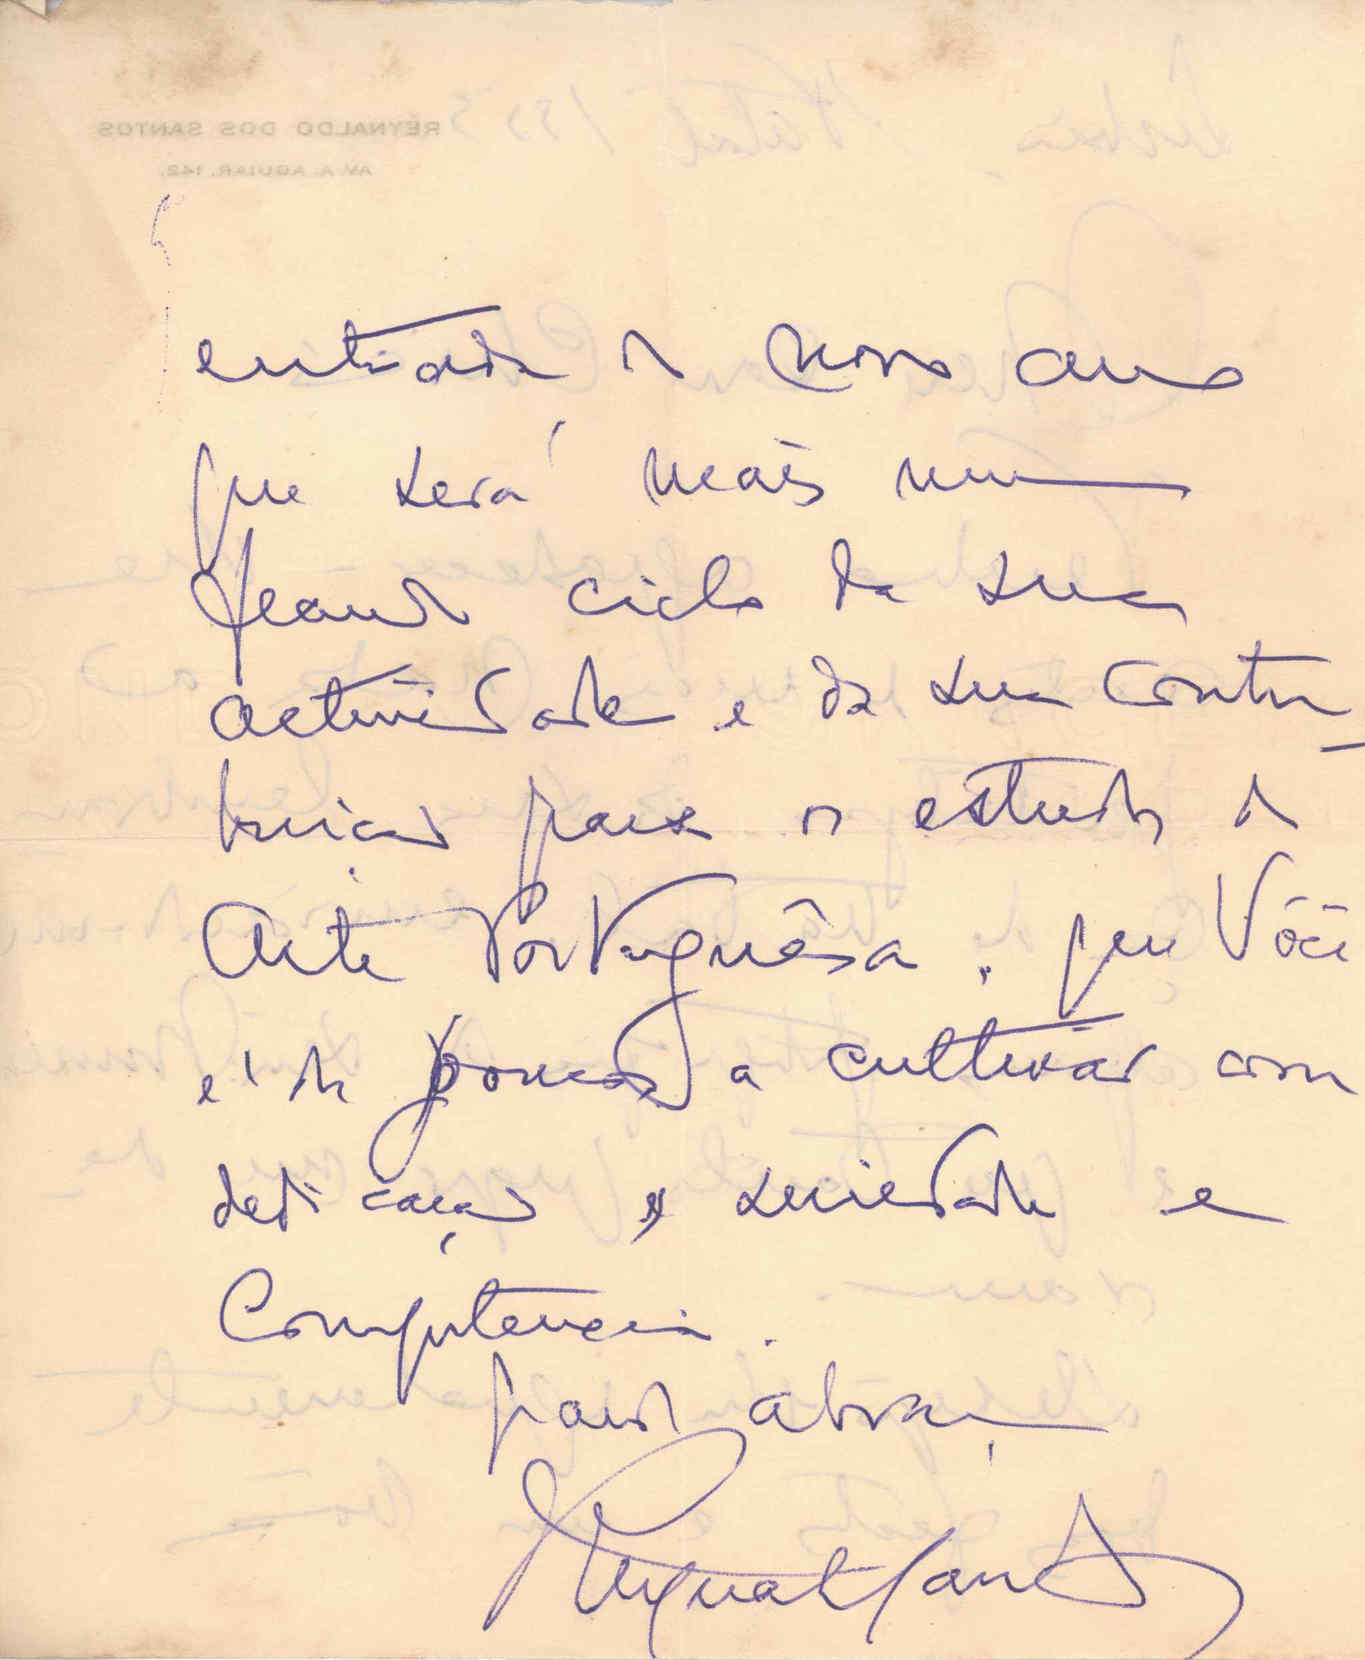 entrada do novo ano
que será mais um
grande ciclo da sua
actividade e da sua contri-
buição para o estudo da
Arte Portuguêsa, que Você
é dos poucos a cultivar com
dedicação, seriedade e
Competencia.
grande abraço
Reynaldo Santos
REYNALDO DOS SANTOS
AV. A. AGUIAR, 142.